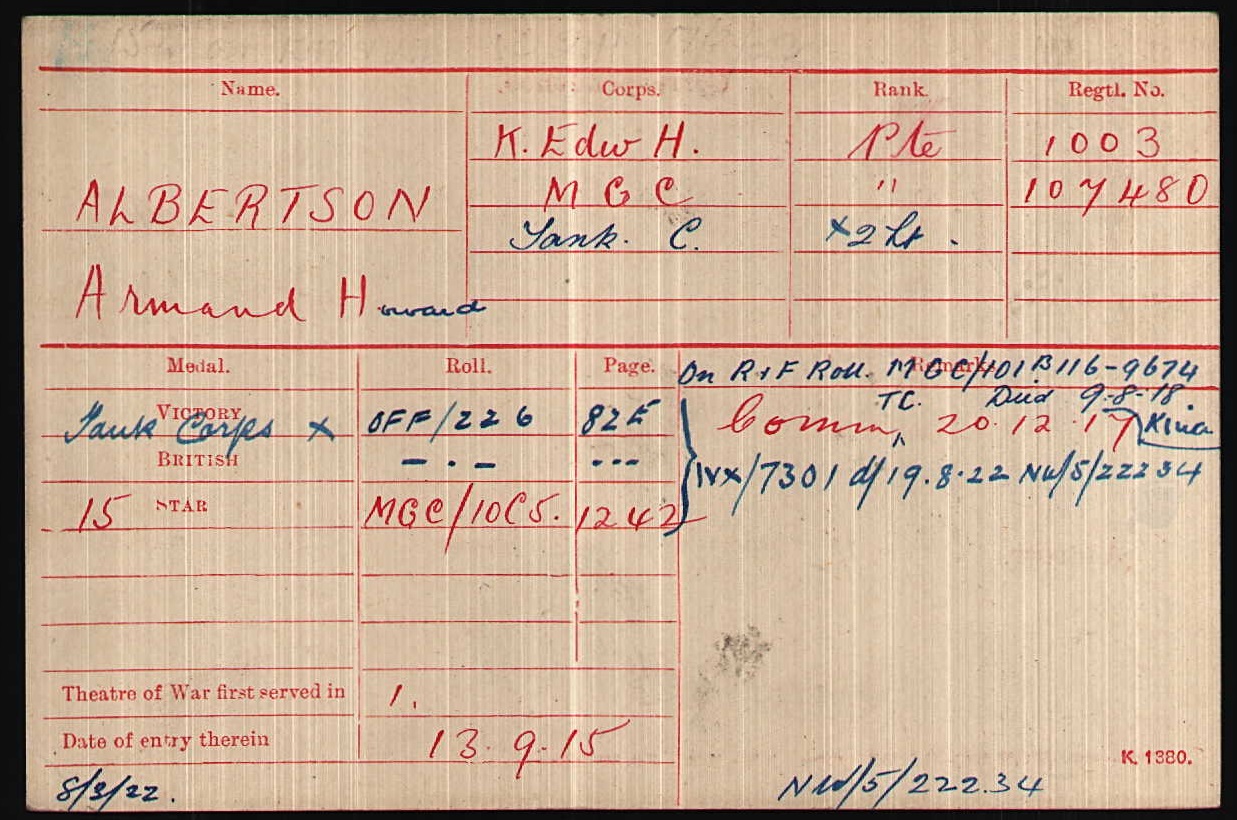 Name. Corps. Rank. Regtl. No.
K. Edw H. Pte 1003
ALBERTSON M G C " 107480
Tank. C. x2 Lt.
Armand Howard
Medal. Roll. Page. Remarks.
On R+F Roll. MGC/101B116-9674
TC. Died 9-8-18.
VICTORY Tank Corps x OFF/226 82E Comm, 20.12.17
BRITISH — . — ---
IVX/7301 d/19.8.22 NW/5/22234
15 STAR MGC/10C5. 1242
Theatre of War first served in 1.
Date of entry therein 13.9.15
K. 1380.
8/3/22. NW/5/22234